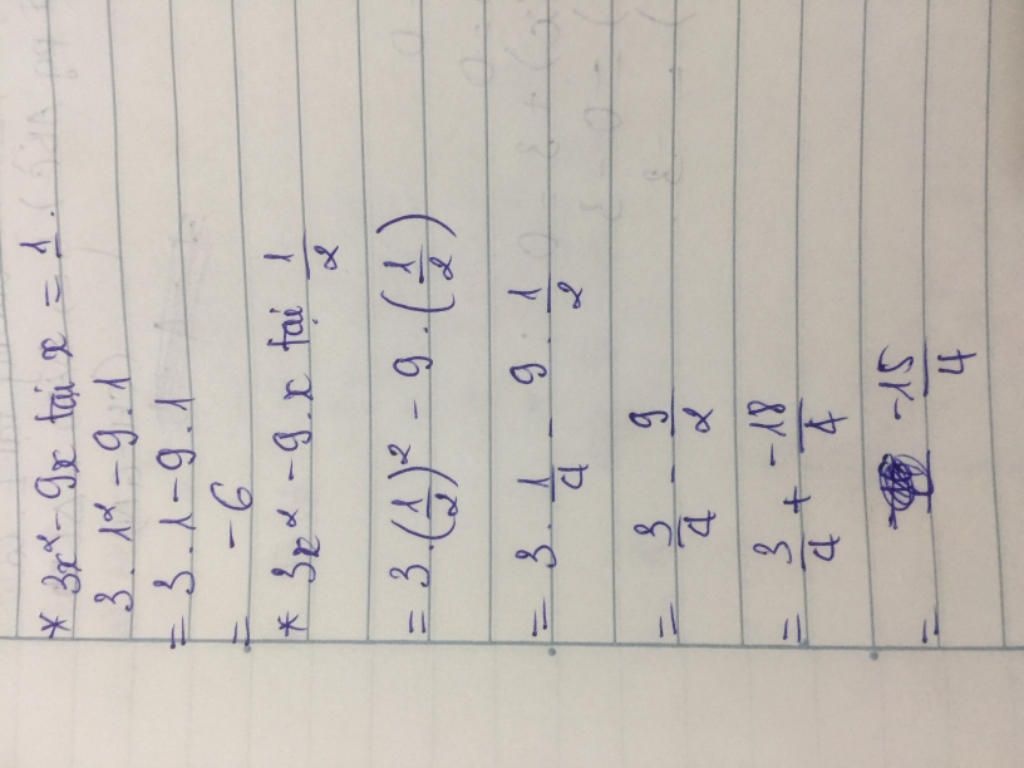 * 3x² - 9x tại x = 1.
3 . 1² - 9 . 1
= 3 . 1 - 9 . 1
= - 6
* 3x² - 9.x tại 1/2
= 3 . (1/2)² - 9 . (1/2)
= 3 . 1/4 - 9 . 1/2
= 3/4 - 9/2
= 3/4 + -18/4
= -15/4